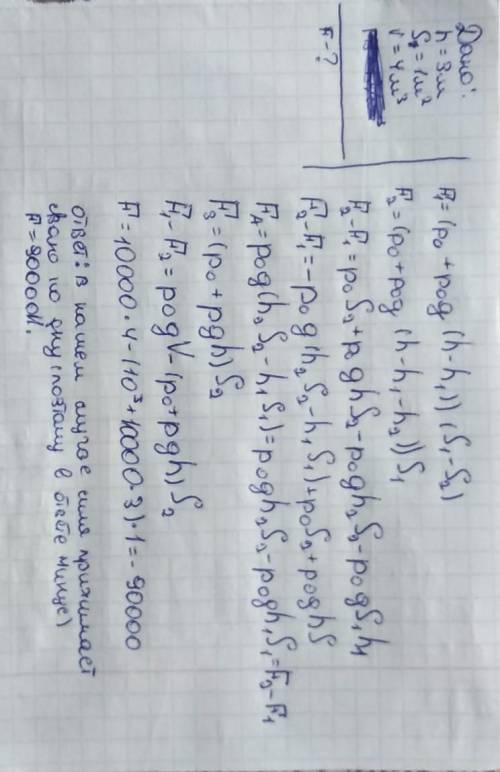 Дано:
h = 3 м
S₂ = 1 м²
V = 4 м³
F - ?
F₁ = (p₀ + ρ₀g (h - h₁)) (S₁ - S₂)
F₂ = (p₀ + ρ₀g (h - h₁ - h₂)) S₁
F₂ - F₁ = p₀S₂ + ρ₀ghS₂ - ρ₀gh₂S₂ - ρ₀gS₁h₁
F₂ - F₁ = -ρ₀g (h₂S₂ - h₁S₁) + p₀S₂ + ρ₀ghS
F_A = ρ₀g (h₂S₂ - h₁S₁) = ρ₀gh₂S₂ - ρ₀gh₁S₁ = F₂ - F₁
F₃ = (p₀ + ρgh) S₂
F₁ - F₂ = ρ₀gV - (p₀ + ρgh) S₂
F = 10000 · 4 - (10⁵ + 10000 · 3) · 1 = -90000
ответ: в нашем случае сила прижимает
сваю по дну (поэтому в ответе минус)
F = 90000 Н.